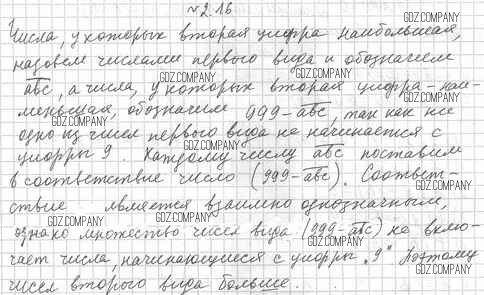 №2.16
Числа, у которых вторая цифра наибольшая,
GDZ.COMPANY
назовем числами первого вида и обозначем
GDZ.COMPANY
abc, а числа, у которых вторая цифра - наи-
GDZ.COMPANY
меньшая, обозначем 999-abc, так как не
GDZ.COMPANY
одно из чисел первого вида не начинается с
GDZ.COMPANY
цифры 9. Каждому числу abc поставим
GDZ.COMPANY
в соответствие число (999-abc). Соответ-
GDZ.COMPANY
ствие является взаимно однозначным,
GDZ.COMPANY
однако множество чисел вида (999-abc) не вклю-
GDZ.COMPANY
чает числа, начинающиеся с цифры "9" Поэтому
GDZ.COMPANY
чисел второго вида больше.
GDZ.COMPANY